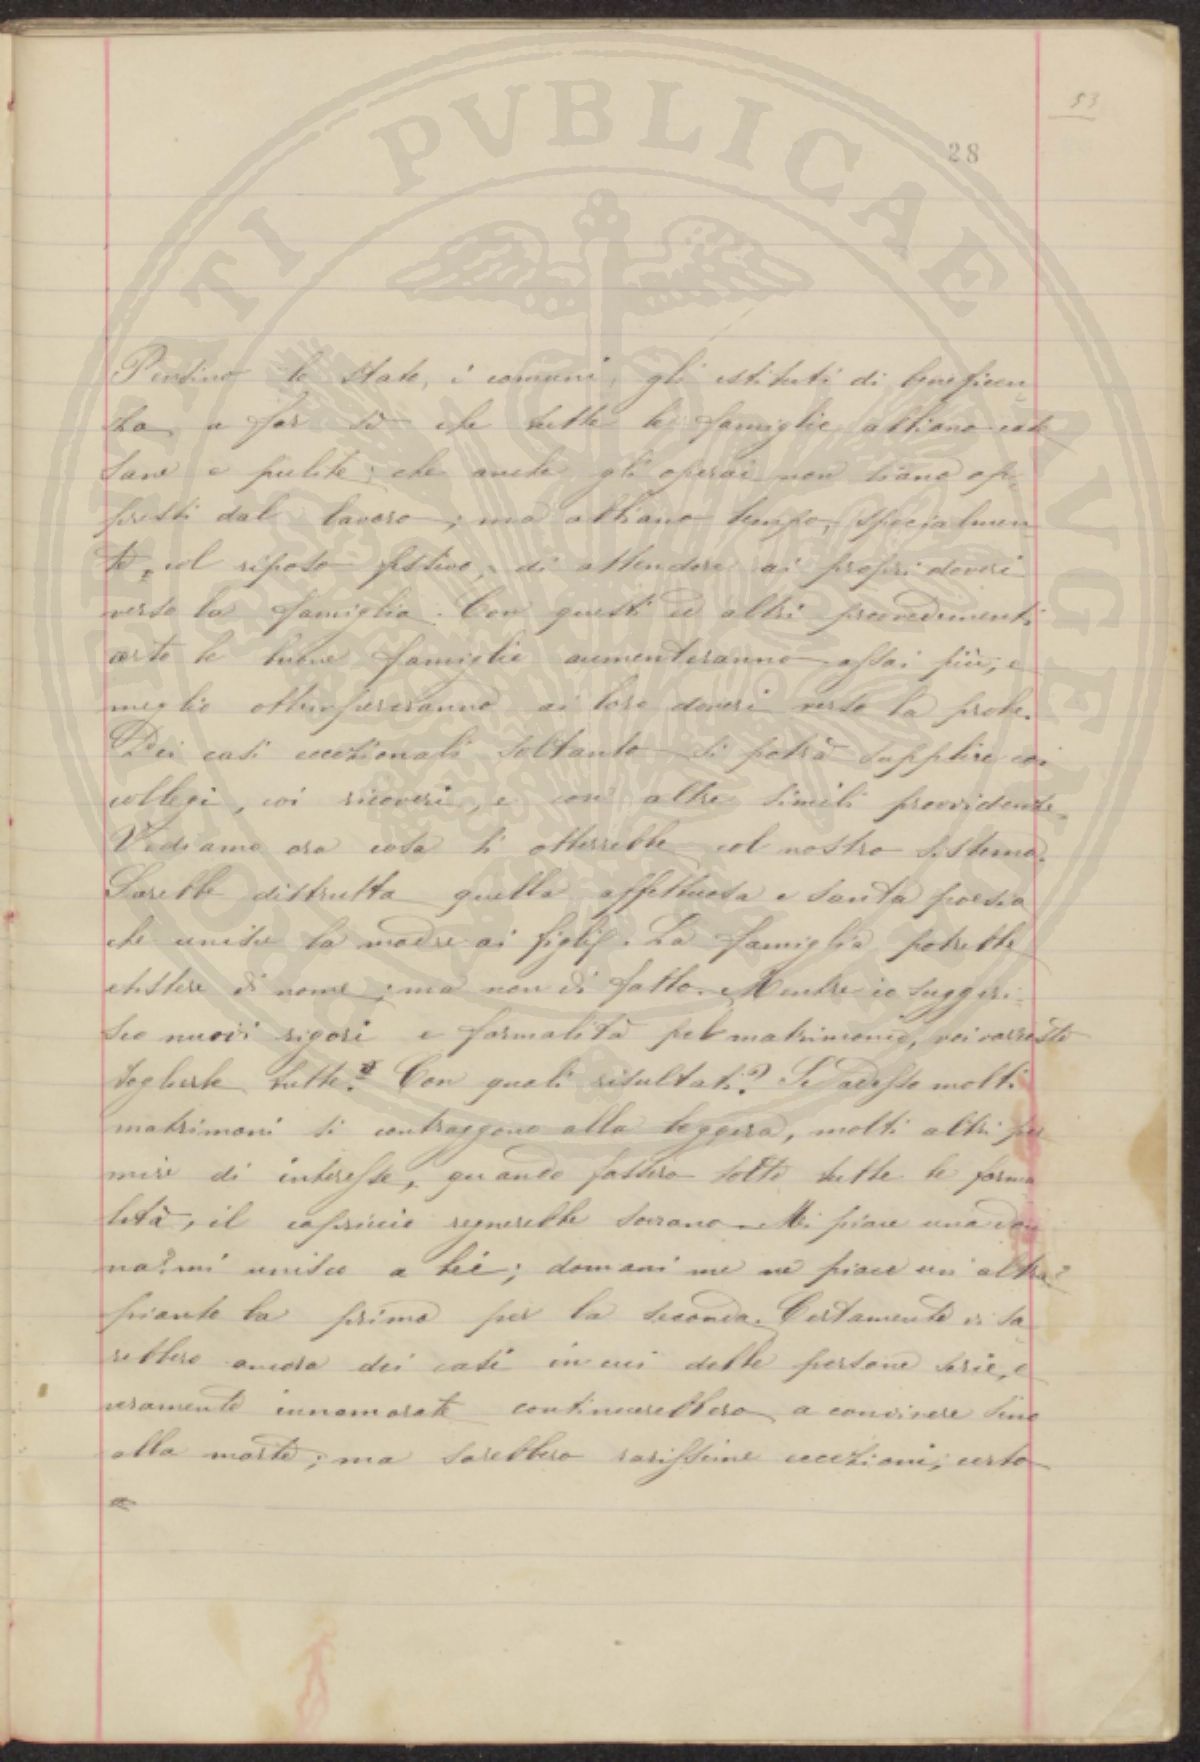 53
28
Pensino lo Stato, i comuni, gli istituti di beneficen
za a far sì che tutte le famiglie abbiano case
sane e pulite; che anche gli operai non siano op-
pressi dal lavoro; ma abbiano tempo, specialmen
te, col riposo festivo, di attendere ai propri doveri
verso la famiglia. Con questi ed altri provvedimenti
certo le buone famiglie aumenteranno assai più, e
meglio ottempereranno ai loro doveri verso la prole.
Dei casi eccezionali soltanto si potrà supplire coi
collegi, coi ricoveri, e con altre simili provvidenze.
Vediamo ora cosa si otterrebbe col vostro sistema.
Sarebbe distrutta quella affettuosa e santa poesia
che unisce la madre ai figli. La famiglia potrebbe
esistere di nome; ma non di fatto. Mentre io suggeri-
sco nuovi rigori e formalità pel matrimonio, voi vorreste
togliere tutte? Con quali risultati? Se adesso molti
matrimoni si contraggono alla leggera, molti altri per
mire di interesse, quando fossero tolte tutte le forma
lità, il capriccio regnerebbe sovrano. Mi piace una don
na? mi unisco a lei; domani me ne piace un'altra?
pianto la prima per la seconda. Certamente vi sa
rebbero ancora dei casi in cui delle persone serie, e
veramente innamorate continuerebbero a convivere sino
alla morte; ma sarebbero rarissime eccezioni; certo
PUBLICAE